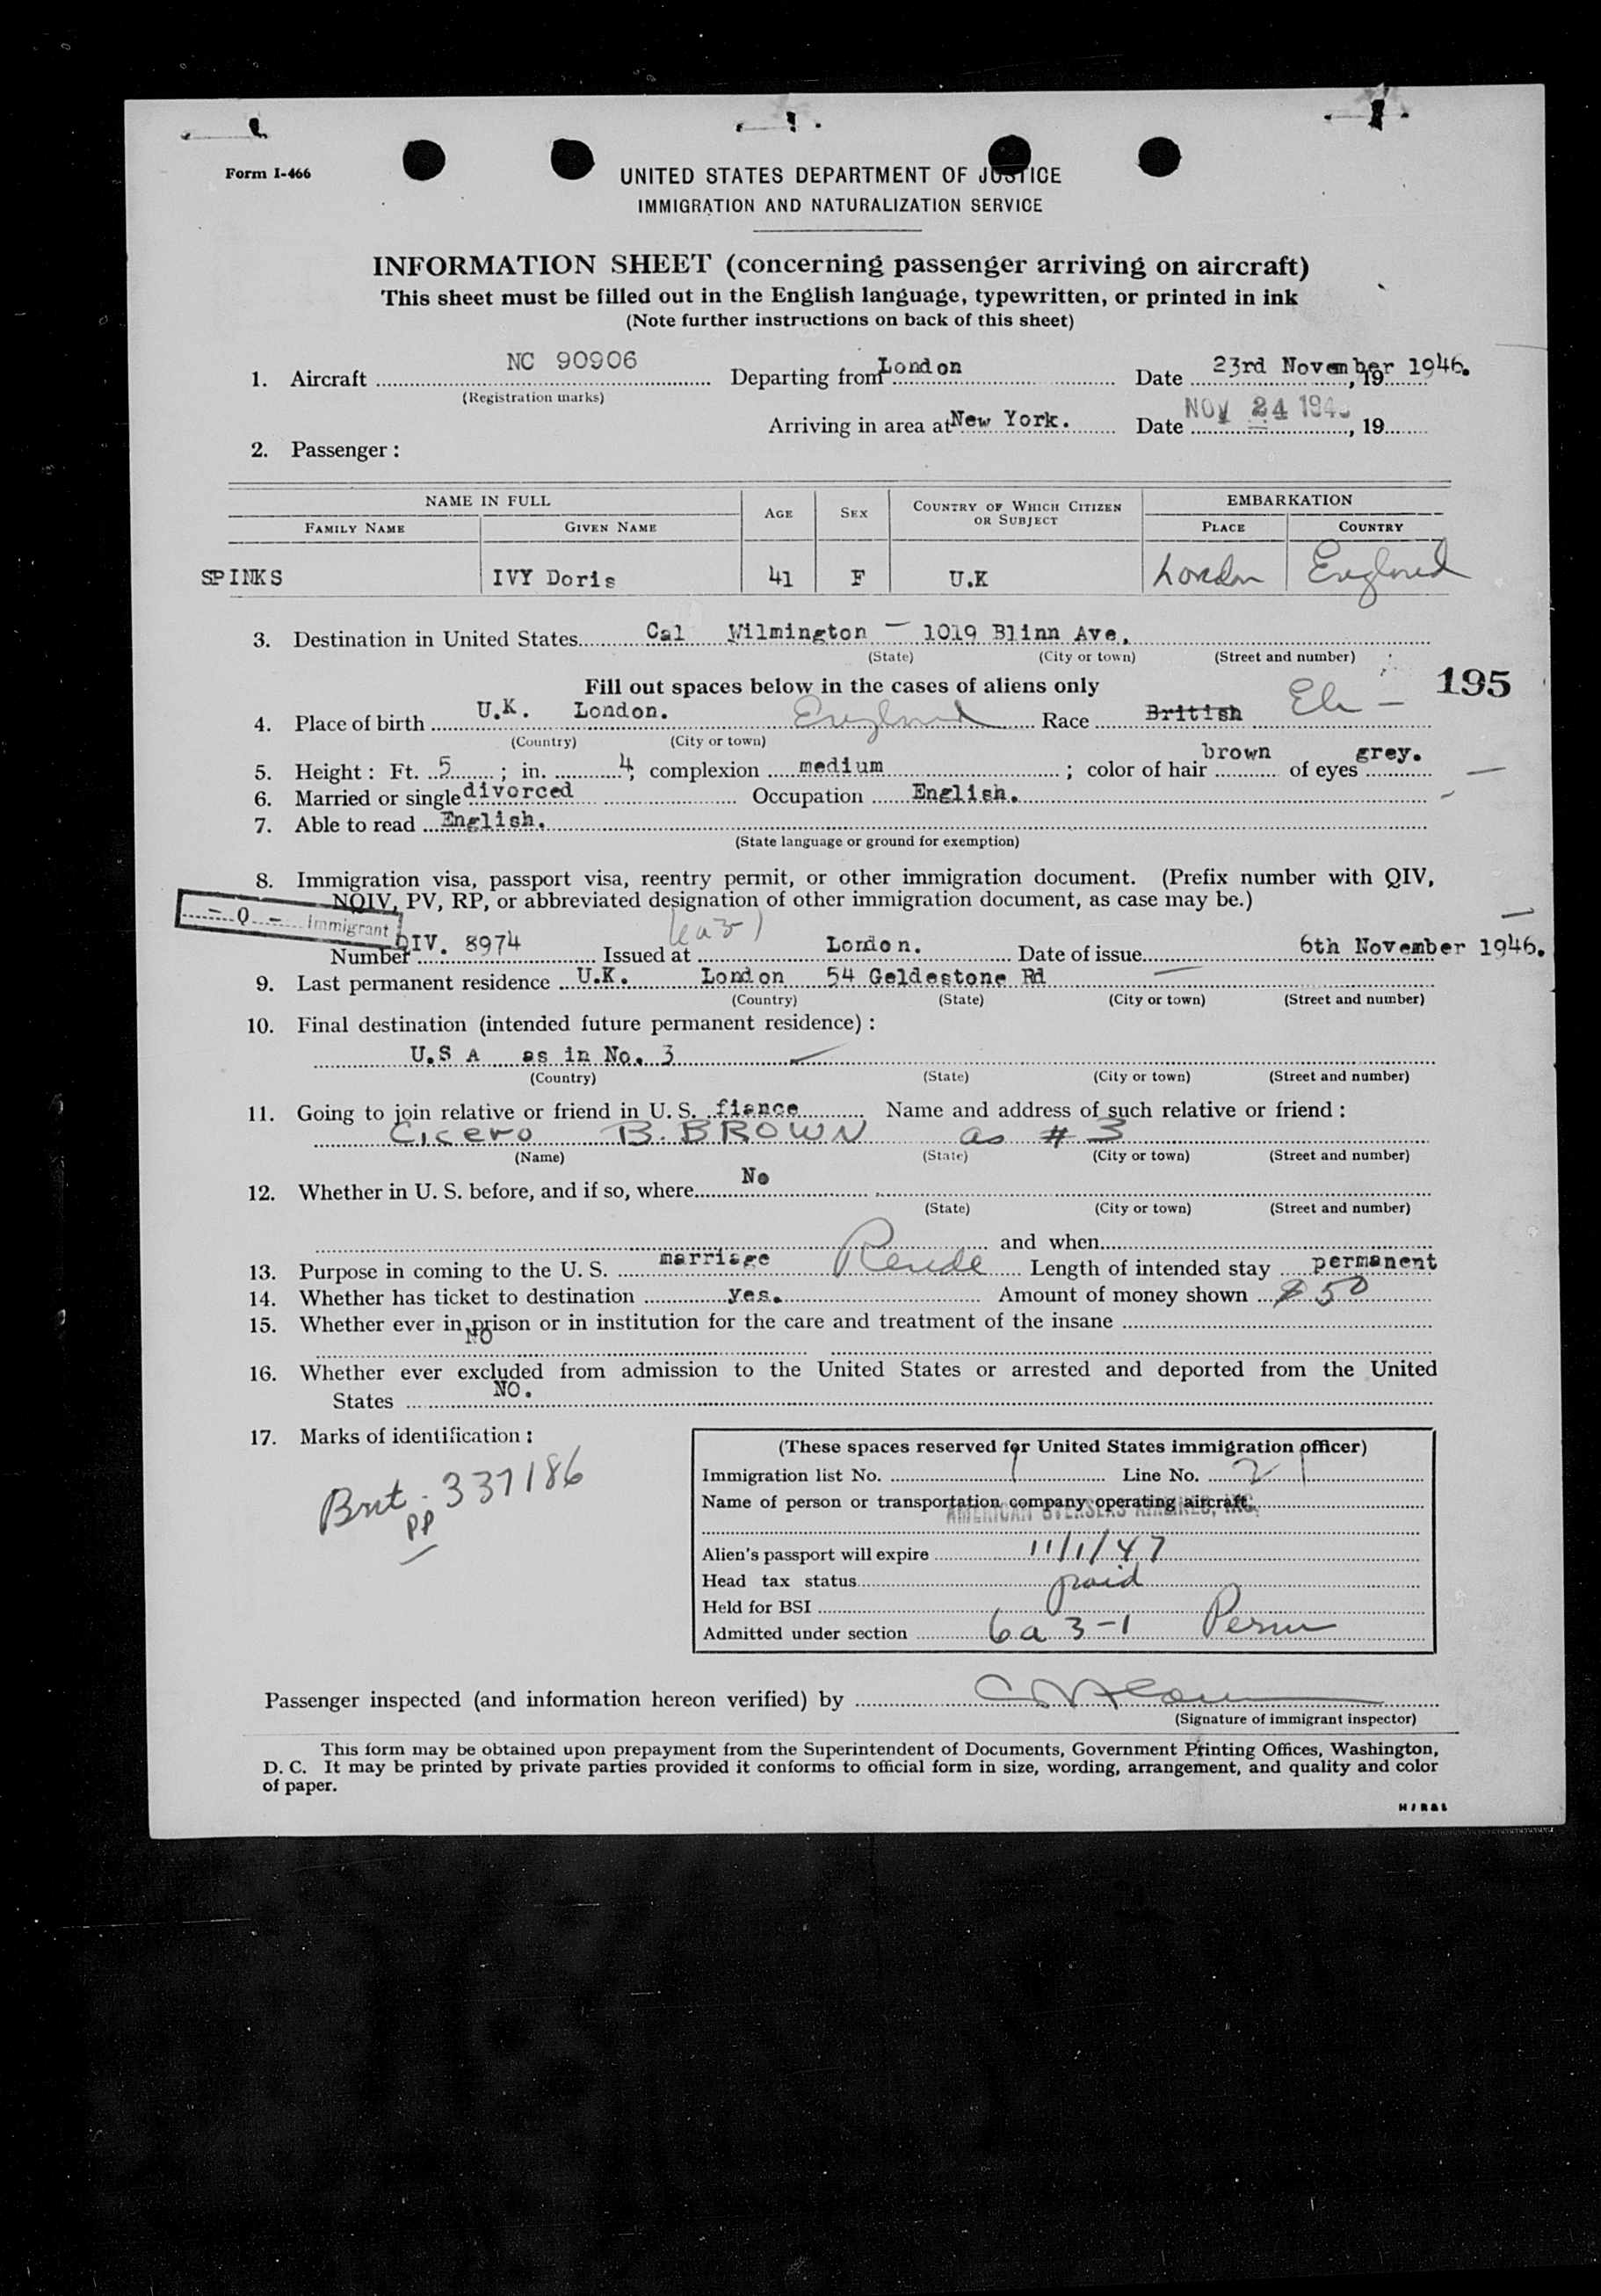 Form I-466
UNITED STATES DEPARTMENT OF JUSTICE
IMMIGRATION AND NATURALIZATION SERVICE
INFORMATION SHEET (concerning passenger arriving on aircraft)
This sheet must be filled out in the English language, typewritten, or printed in ink
(Note further instructions on back of this sheet)
1. Aircraft NC 90906 Departing from London Date 23rd November 1946. , 19
(Registration marks)
Arriving in area at New York. Date NOV 24 1946 , 19
2. Passenger :
NAME IN FULL AGE SEX COUNTRY OF WHICH CITIZEN OR SUBJECT EMBARKATION
FAMILY NAME GIVEN NAME PLACE COUNTRY
SPINKS IVY Doris 41 F U.K London England
3. Destination in United States Cal Wilmington — 1019 Blinn Ave.
(State) (City or town) (Street and number)
195
Fill out spaces below in the cases of aliens only
4. Place of birth U.K. London. England Race British
(Country) (City or town)
5. Height : Ft. 5 ; in. 4 ; complexion medium ; color of hair brown of eyes grey.
6. Married or single divorced Occupation English.
7. Able to read English.
(State language or ground for exemption)
8. Immigration visa, passport visa, reentry permit, or other immigration document. (Prefix number with QIV,
NQIV, PV, RP, or abbreviated designation of other immigration document, as case may be.)
— Q — Immigrant
6a3-1
Number QIV. 8974 Issued at London. Date of issue 6th November 1946.
9. Last permanent residence U.K. London 54 Geldestone Rd
(Country) (State) (City or town) (Street and number)
10. Final destination (intended future permanent residence) :
U.S A as in No. 3
(Country) (State) (City or town) (Street and number)
11. Going to join relative or friend in U. S. fiance Name and address of such relative or friend :
Cicero B. BROWN as # 3
(Name) (State) (City or town) (Street and number)
12. Whether in U. S. before, and if so, where No
(State) (City or town) (Street and number)
and when
13. Purpose in coming to the U. S. marriage Reside Length of intended stay permanent
14. Whether has ticket to destination yes. Amount of money shown $50
15. Whether ever in prison or in institution for the care and treatment of the insane
NO
16. Whether ever excluded from admission to the United States or arrested and deported from the United
States NO.
17. Marks of identification :
Brit. 337186
PP
(These spaces reserved for United States immigration officer)
Immigration list No. 1 Line No. 2
Name of person or transportation company operating aircraft
AMERICAN OVERSEAS AIRLINES, INC.
Alien's passport will expire 11/1/47
Head tax status paid
Held for BSI
Admitted under section 6a 3-1 Perm
Passenger inspected (and information hereon verified) by
(Signature of immigrant inspector)
This form may be obtained upon prepayment from the Superintendent of Documents, Government Printing Offices, Washington,
D. C. It may be printed by private parties provided it conforms to official form in size, wording, arrangement, and quality and color
of paper.